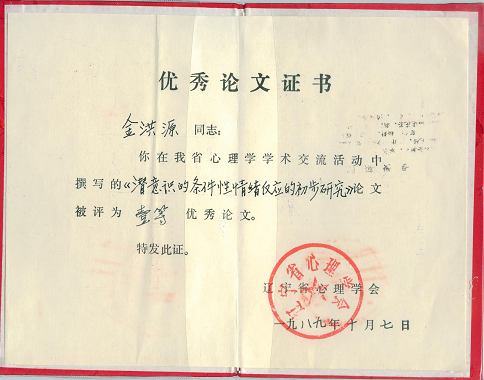 优秀论文证书
金洪源 同志:
你在我省心理学学术交流活动中
撰写的《潜意识的条件性情绪反应的初步研究》论文
被评为 壹等 优秀论文。
特发此证。
辽宁省心理学会
辽宁省心理学会
一九八九年十月七日